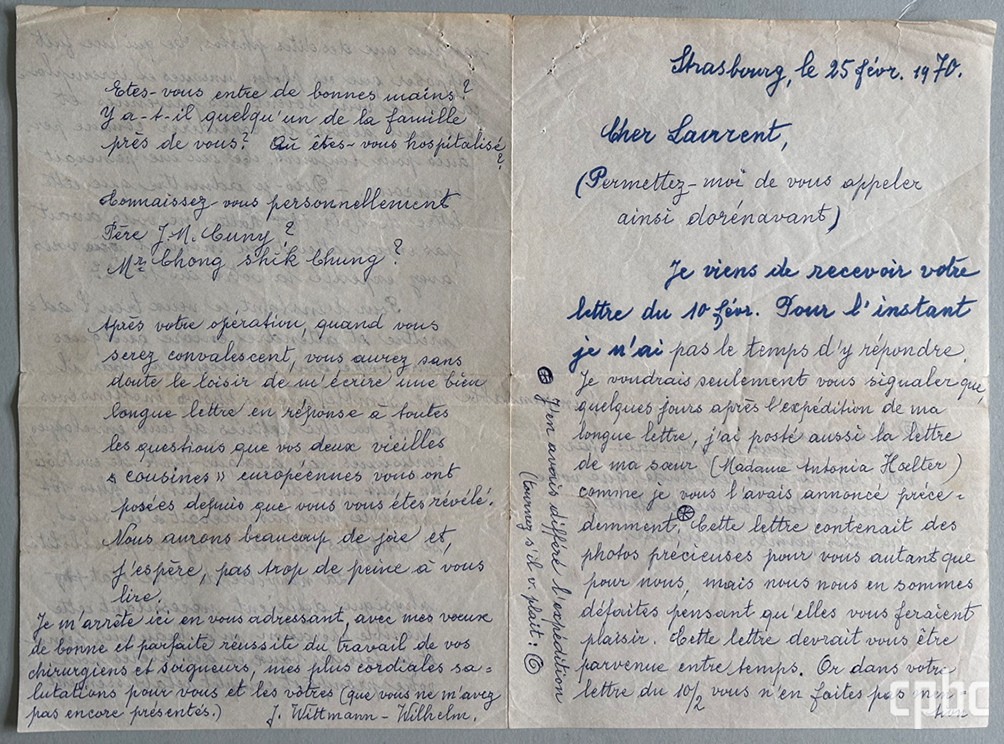 Strasbourg, le 25 févr. 1970.
Cher Laurent,
(Permettez-moi de vous appeler
ainsi dorénavant)
Je viens de recevoir votre
lettre du 10 févr. Pour l'instant
je n'ai pas le temps d'y répondre.
Je voudrais seulement vous signaler que,
quelques jours après l'expédition de ma
longue lettre, j'ai posté aussi la lettre
de ma sœur (Madame Antonia Hoelter)
comme je vous l'avais annoncé précé-
demment. ⊛ Cette lettre contenait des
photos précieuses pour vous autant que
pour nous, mais nous nous en sommes
défaites pensant qu'elles vous feraient
plaisir. Cette lettre devrait vous être
parvenue entre temps. Or dans votre
lettre du 10/2 vous n'en faites pas men-
⊛ J'en avais différé l'expédition
(tournez s'il v. plait:
Etes-vous entre de bonnes mains?
Y a-t-il quelqu'un de la famille
près de vous? Où êtes-vous hospitalisé
?
Connaissez-vous personnellement
Père J.M. Cuny?
Mr. Chong Shik Chung?
Après votre opération, quand vous
serez convalescent, vous aurez sans
doute le loisir de m'écrire une bien
longue lettre en réponse à toutes
les questions que vos deux vieilles
« cousines » européennes vous ont
posées depuis que vous vous êtes révélé.
Nous aurons beaucoup de joie et,
j'espère, pas trop de peine à vous
lire.
Je m'arrête ici en vous adressant, avec mes vœux
de bonne et parfaite réussite du travail de vos
chirurgiens et soigneurs, mes plus cordiales sa-
lutations pour vous et les vôtres (que vous ne m'avez
pas encore présentés.) J. Wittmann-Wilhelm.
cphc